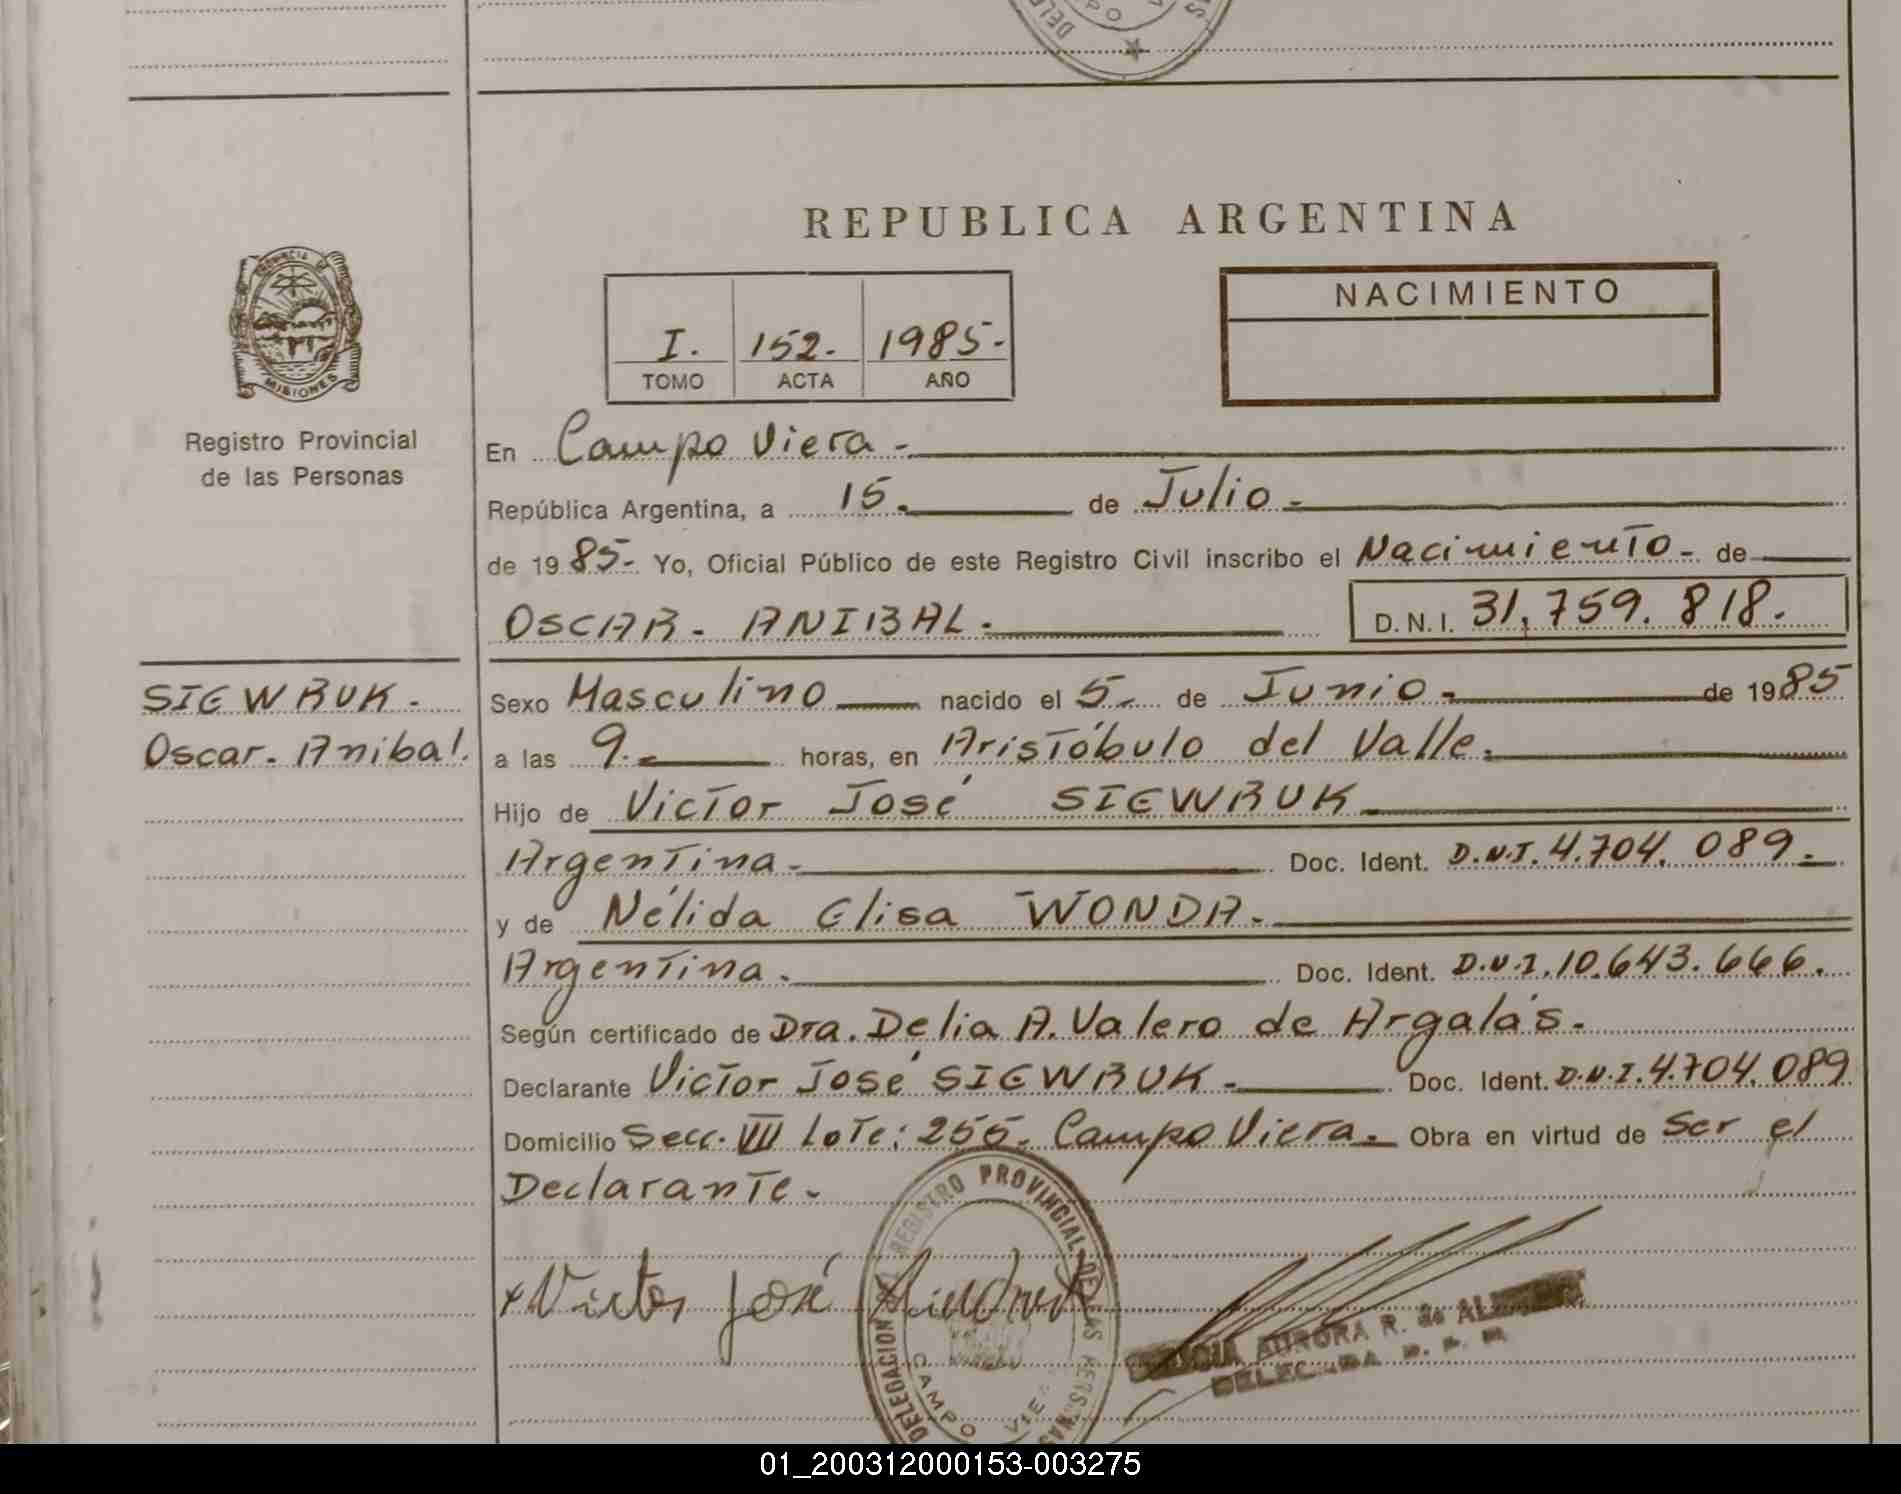 REPUBLICA ARGENTINA
PROVINCIA DE
MISIONES
Registro Provincial
de las Personas
I. 152. 1985.-
TOMO ACTA AÑO
NACIMIENTO
En Campo Viera.-
República Argentina, a 15. de Julio.-
de 1985.- Yo, Oficial Público de este Registro Civil inscribo el Nacimiento.- de
OSCAR. ANIBAL.
D.N.I. 31.759.818.
SIEWRUK.
Oscar. Anibal.
Sexo Masculino nacido el 5.- de Junio.- de 1985
a las 9.- horas, en Aristóbulo del Valle.
Hijo de Victor José SIEWRUK
Argentina.- Doc. Ident. D.N.I. 4.704.089.-
y de Nélida Elisa WONDA.-
Argentina. Doc. Ident. D.N.I. 10.643.666.
Según certificado de Dra. Delia A. Valero de Argalás.
Declarante Victor José SIEWRUK.- Doc. Ident. D.N.I. 4.704.089
Domicilio Secc. VII Lote: 255. Campo Viera.- Obra en virtud de Ser el
Declarante.-
Victor José
DELEGACION REGISTRO PROVINCIAL DE LAS PERSONAS
CAMPO VIERA
AURORA R. de
01_200312000153-003275